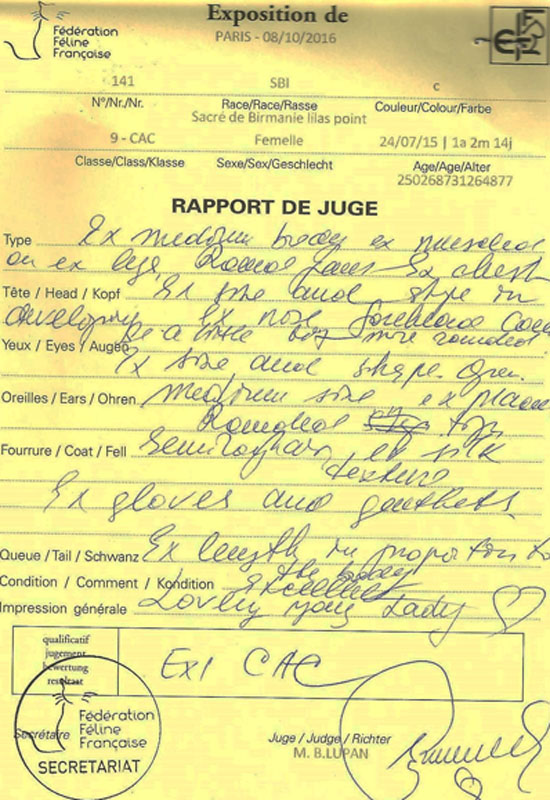 Fédération
Féline
Française
Exposition de
PARIS - 08/10/2016
141 SBI c
N°/Nr./Nr. Race/Race/Rasse Couleur/Colour/Farbe
Sacré de Birmanie lilas point
9 - CAC Femelle 24/07/15 | 1a 2m 14j
Classe/Class/Klasse Sexe/Sex/Geschlecht Age/Age/Alter
250268731264877
RAPPORT DE JUGE
Type Ex medium body ex
on ex legs Round paws Ex chest
Tête / Head / Kopf Ex size and shape in
developing Ex nose forehead
be a little bit more rounded
Yeux / Eyes / Augen Ex size and shape
Oreilles / Ears / Ohren medium size ex
Rounded
Fourrure / Coat / Fell ex silk
texture
Ex gloves and gauntlets.
Queue / Tail / Schwanz Ex length in proportion to
the body
Condition / Comment / Kondition excellent
Impression générale Lovely young Lady
qualificatif
jugement
bewertung
resultaat
Ex1 CAC
Secrétaire
Fédération
Féline
Française
SECRETARIAT
Juge / Judge / Richter
M. B.LUPAN